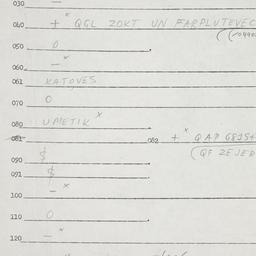 030 —
040 + QGL ZOKT UN FABPLUTEVEC
050 0
060 —
061 KATOVES
070 0
080 UMETIK
081 082 + QAP
090 $ (QF ZEJED
091 $
100 —
110 0
120 —